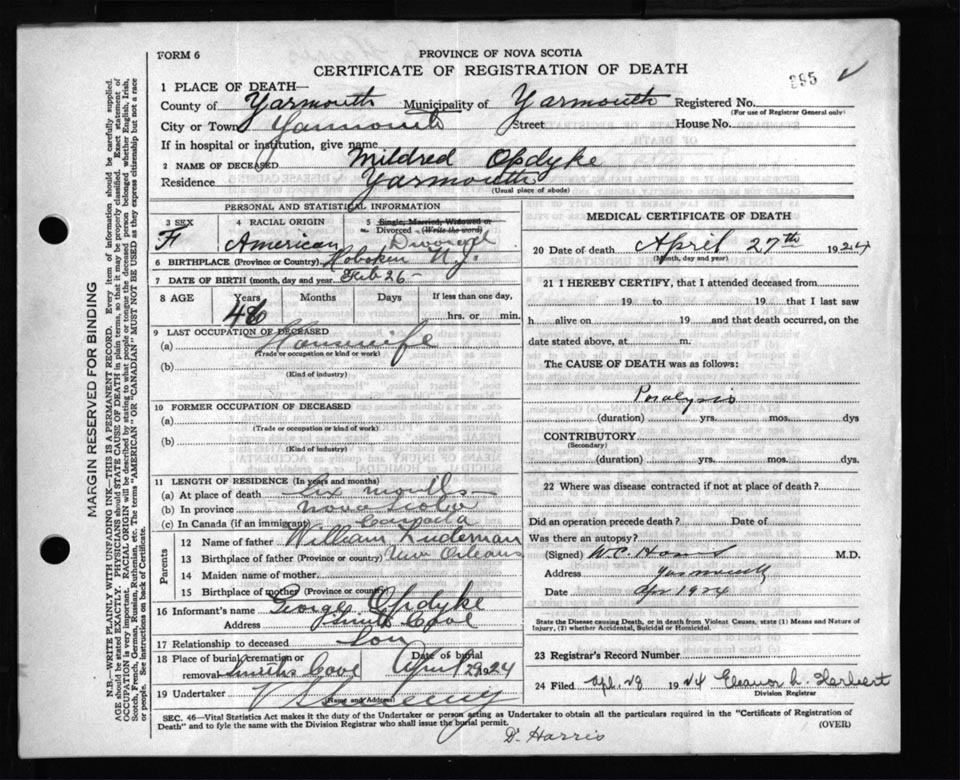 FORM 6
PROVINCE OF NOVA SCOTIA
CERTIFICATE OF REGISTRATION OF DEATH
1 PLACE OF DEATH—
County of Yarmouth Municipality of Yarmouth Registered No.
(For use of Registrar General only)
City or Town Yarmouth Street House No.
If in hospital or institution, give name
2 NAME OF DECEASED Mildred Opdyke
Residence Yarmouth
(Usual place of abode)
PERSONAL AND STATISTICAL INFORMATION
3 SEX F
4 RACIAL ORIGIN American
5 Single, Married, Widowed or Divorced (Write the word) Divorced
6 BIRTHPLACE (Province or Country) Hoboken N.J.
7 DATE OF BIRTH (month, day and year) Feb 26 –
8 AGE Years Months Days If less than one day,
46 hrs. or min.
9 LAST OCCUPATION OF DECEASED
(a) Housewife
(Trade or occupation or kind or work)
(b)
(Kind of industry)
10 FORMER OCCUPATION OF DECEASED
(a)
(Trade or occupation or kind of work)
(b)
(Kind of industry)
11 LENGTH OF RESIDENCE (In years and months)
(a) At place of death Six months
(b) In province Nova Scotia
(c) In Canada (if an immigrant) Canada
Parents
12 Name of father William
13 Birthplace of father (Province or country) New Orleans
14 Maiden name of mother
15 Birthplace of mother (Province or country)
16 Informant's name George Opdyke
Address Smiths Cove
17 Relationship to deceased Son
18 Place of burial, cremation or removal Smiths Cove Date of burial April 29 1924
19 Undertaker
(Name and Address)
MEDICAL CERTIFICATE OF DEATH
20 Date of death April 27th 1924
(Month, day and year)
21 I HEREBY CERTIFY, that I attended deceased from
19 to 19 that I last saw
h alive on 19 and that death occurred, on the
date stated above, at m.
The CAUSE OF DEATH was as follows:
Paralysis
(duration) yrs. mos. dys
CONTRIBUTORY
(Secondary)
(duration) yrs. mos. dys.
22 Where was disease contracted if not at place of death?
Did an operation precede death? Date of
Was there an autopsy?
(Signed) W.C. Harris M.D.
Address Yarmouth
Date Apr 1924
State the Disease causing Death, or in death from Violent Causes, state (1) Means and Nature of
Injury, (2) whether Accidental, Suicidal or Homicidal.
23 Registrar's Record Number
24 Filed Apl. 28 1924 Eleanor L. Herbert
Division Registrar
SEC. 46—Vital Statistics Act makes it the duty of the Undertaker or person acting as Undertaker to obtain all the particulars required in the "Certificate of Registration of
Death" and to fyle the same with the Division Registrar who shall issue the burial permit. (OVER)
Dr Harris
MARGIN RESERVED FOR BINDING
N.B.—WRITE PLAINLY WITH UNFADING INK—THIS IS A PERMANENT RECORD. Every item of information should be carefully supplied.
AGE should be stated EXACTLY. PHYSICIANS should STATE CAUSE OF DEATH in plain terms, so that it may be properly classified. Exact statement of
OCCUPATION is very important. RACIAL ORIGIN will be described by stating to what people or tongue the deceased person belonged whether English, Irish,
Scotch, French, German, Russian, Ruthenian, etc. The terms "AMERICAN" OR "CANADIAN" MUST NOT BE USED as they express citizenship but not a race
or people. See instructions on back of Certificate.